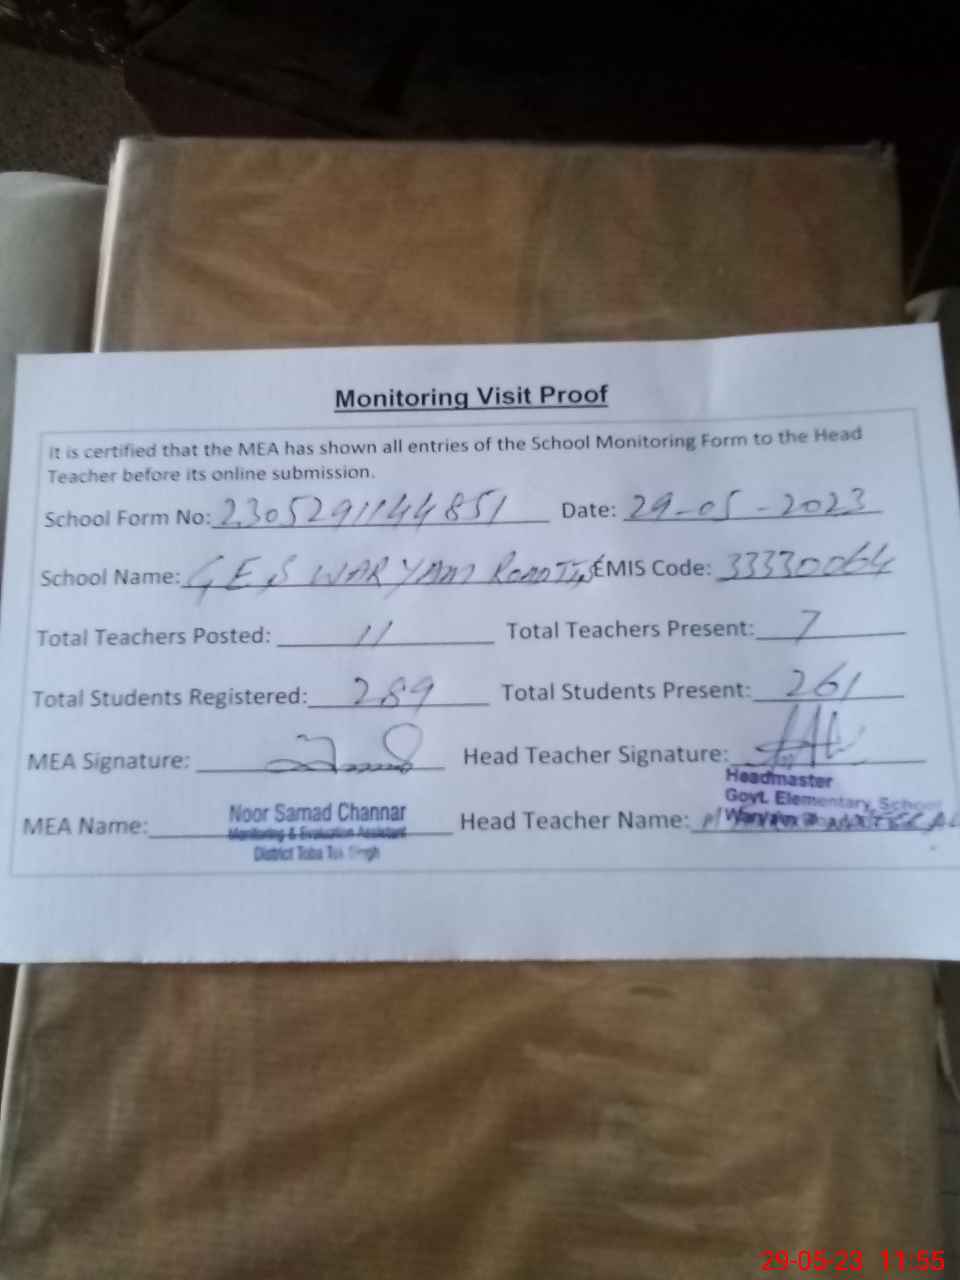 Monitoring Visit Proof
It is certified that the MEA has shown all entries of the School Monitoring Form to the Head
Teacher before its online submission.
School Form No: 2305291144851 Date: 29-05-2023
School Name: GES WARYAM ROAD TTS EMIS Code: 33330064
Total Teachers Posted: 11 Total Teachers Present: 7
Total Students Registered: 289 Total Students Present: 261
MEA Signature: Head Teacher Signature:
Headmaster
Govt. Elementary School
MEA Name: Noor Samad Channar Head Teacher Name:
Monitoring & Evaluation Assistant
District Toba Tek Singh
29-05-23 11:55